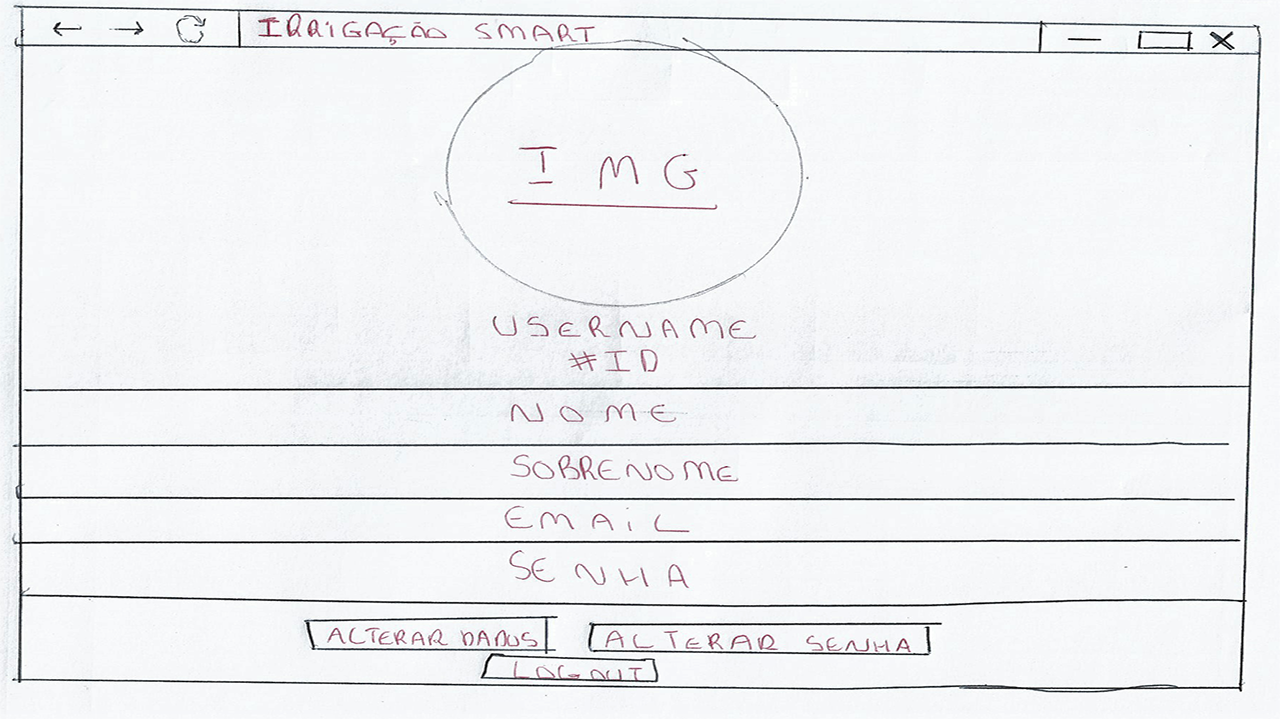 IRRIGAÇÃO SMART
IMG
USERNAME
#ID
NOME
SOBRENOME
EMAIL
SENHA
ALTERAR DADOS
ALTERAR SENHA
LOGOUT